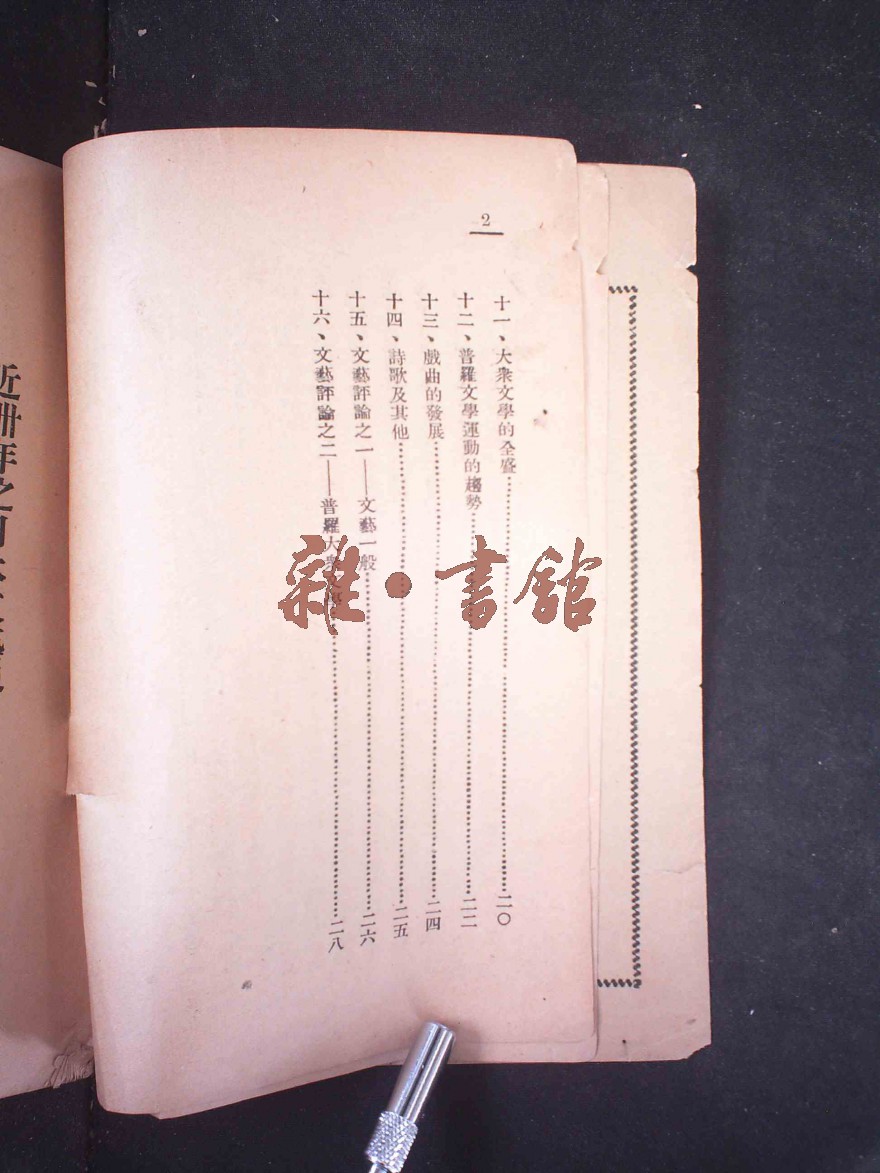 2
十一、大衆文學的全盛……二〇
十二、普羅文學運動的趨勢……二二
十三、戲曲的發展……二四
十四、詩歌及其他……二五
十五、文藝評論之一——文藝一般……二六
十六、文藝評論之二——普羅大衆……二八
近卅年之
雜·書館